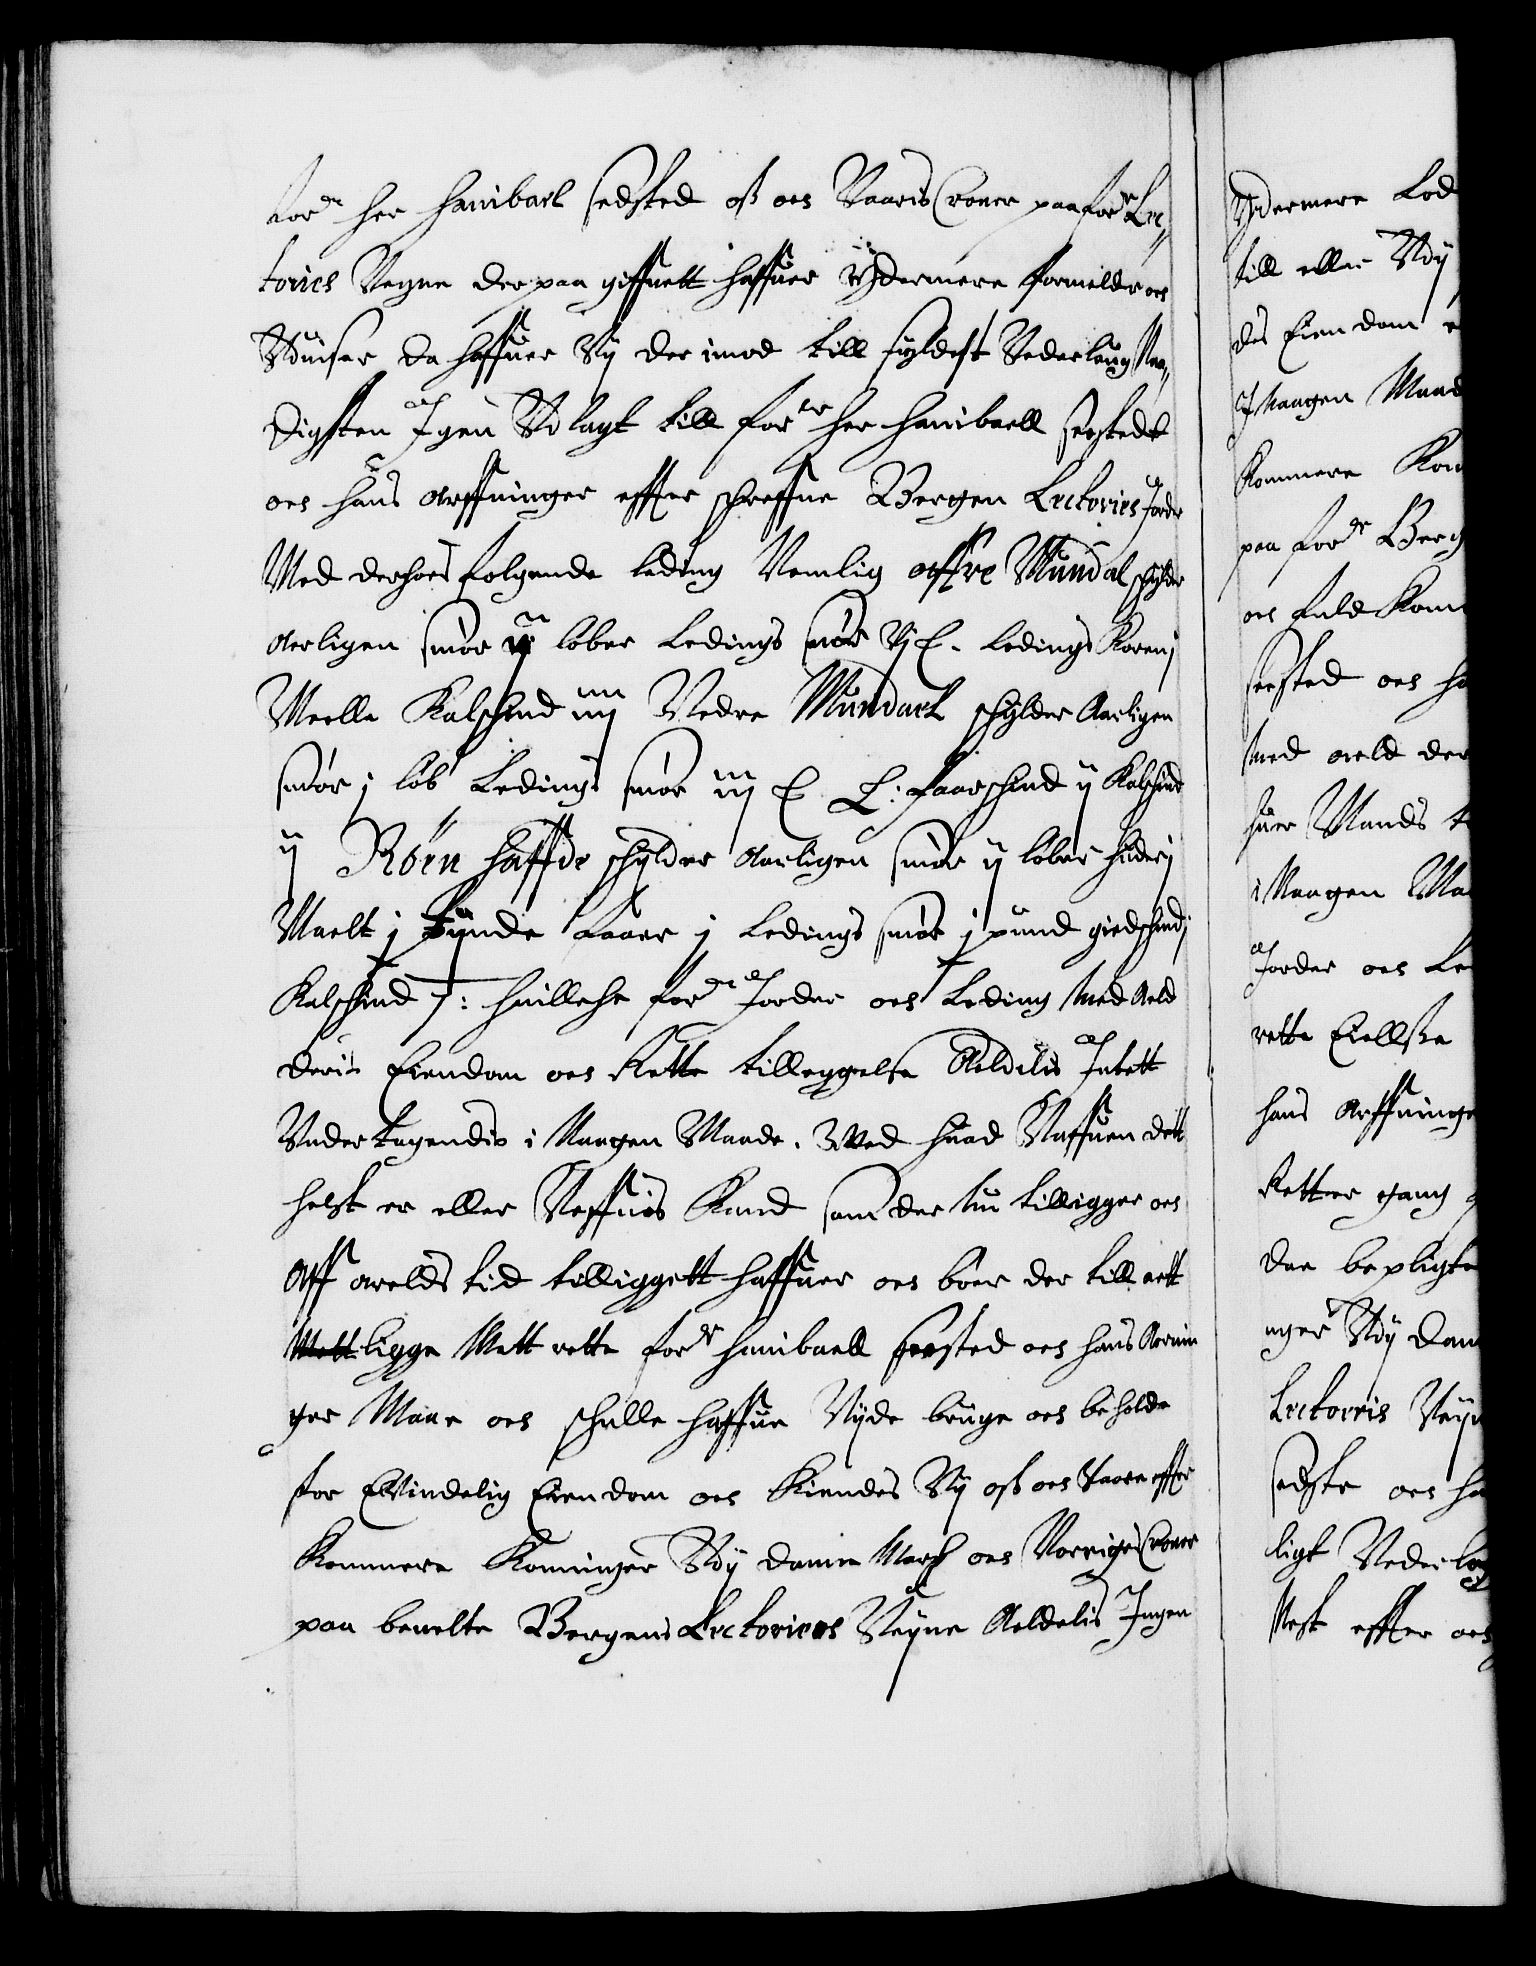 ford her Hanibael sedsted oss och Vaaris Croner paa ford Lec,
tories Vegne der paa giffuett haffuer Ydermere formelder och
Vduiser da haffuer Vy der imod till fyldest Vederlaug Naa,
digsten Igen Vdlagt till forde her Hanibaell sersteds
och hans Arffuinger effter schreffne Bergen Lectories Jorder
Med derhoes folgende leding Nemlig offre Mundal schylder
Aarligen smør ij løber Ledings smør vj L. Ledings Koren j
Meelle Kalschind iiij Nedre Mundael schylder Aarligen
smør j løb Ledings smør iij L L: faarschind ij Kalschind
ij Røen Haffde schylder Aarligen smør ij løber huder j
Maelt j tynde faaer j Ledings smør j pund giedschind j
Kalschind j: huillche forde Jorder och Leding Med Aeld
deris Eiendom och Rette tilleggelse Aeldelis Intett
Vndertagendis i Naagen Maade. Wed huad Naffuen dett
helst er eller Neffnis Kand som der Nu tilligger och
Aff Arelds tid tilliggett haffuer och bøer der till att
ligge Mett rette ford Hanibaell seested och hans Aruin
ger Maae och schulle haffue Nyde bruge och beholde
for Ewindelig Eiendom och Kiendes Vy oss och Vaare effter
Kommere Konninger Vdy Danne March och Norriges Croner
paa benelte Bergens Lectories Vegne Aeldelis Ingen
Ydermere Lod
till eller Vdy
des Eiendom e
I Naagen Maad
Kommere Kon
paa forde Berg
och fuld Kom
seested och ha
med aeld der
huer Mands t
i Naagen Ma
Jorder och Le
rette Eiellsse
hans Arffuinge
Retter gang
der bepligte
nger Vdy Dan
Lectorris Vegn
sedste och ha
ligt Vederlag
Nest effter och